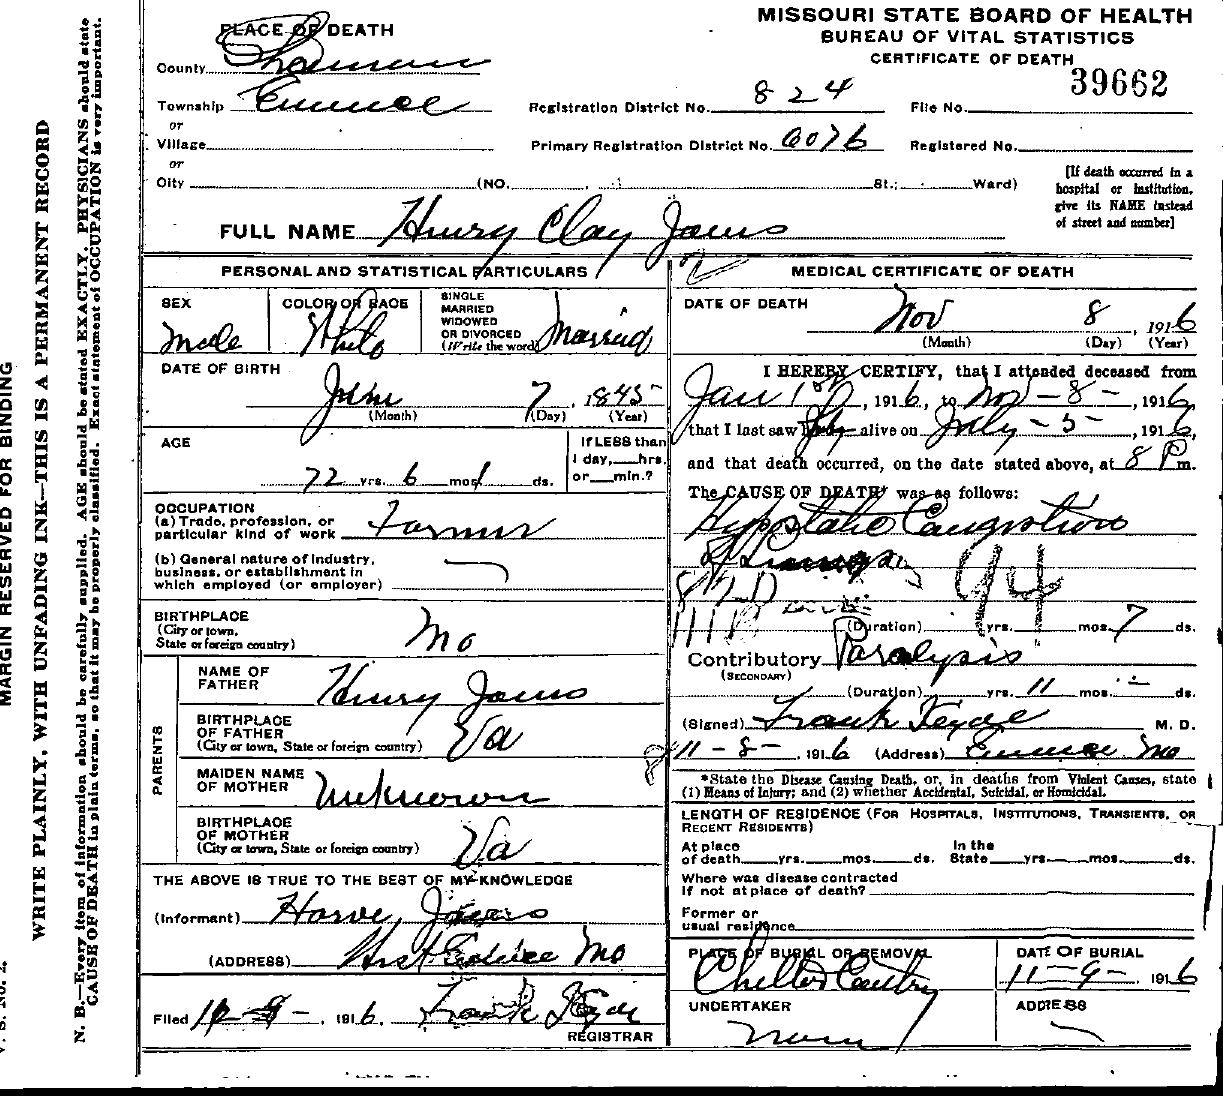 MISSOURI STATE BOARD OF HEALTH
BUREAU OF VITAL STATISTICS
CERTIFICATE OF DEATH
39662
PLACE OF DEATH
County Shannon
Township Eminence
or
Village
or
City (NO. St.; Ward)
Registration District No. 824 File No.
Primary Registration District No. 6076 Registered No.
[If death occurred in a
hospital or institution,
give its NAME instead
of street and number]
FULL NAME Henry Clay James
PERSONAL AND STATISTICAL PARTICULARS
SEX
Male
COLOR OR RACE
White
SINGLE
MARRIED
WIDOWED
OR DIVORCED
(Write the word)
Married
DATE OF BIRTH
June 7, 1845
(Month) (Day) (Year)
AGE
72 yrs. 6 mos. 1 ds.
If LESS than
1 day,___hrs.
or___min.?
OCCUPATION
(a) Trade, profession, or
particular kind of work Farmer
(b) General nature of industry,
business, or establishment in
which employed (or employer)
BIRTHPLACE
(City or town,
State or foreign country)
Mo
PARENTS
NAME OF
FATHER
Henry James
BIRTHPLACE
OF FATHER
(City or town, State or foreign country)
Va
MAIDEN NAME
OF MOTHER
Unknown
BIRTHPLACE
OF MOTHER
(City or town, State or foreign country)
Va
THE ABOVE IS TRUE TO THE BEST OF MY KNOWLEDGE
(Informant) Harve James
(ADDRESS) Mo
Filed 1916. Frank
REGISTRAR
MEDICAL CERTIFICATE OF DEATH
DATE OF DEATH
Nov 8, 1916
(Month) (Day) (Year)
I HEREBY CERTIFY, that I attended deceased from
Jan 1st, 1916, to Nov-8-, 1916,
that I last saw alive on July-5-, 1916,
and that death occurred, on the date stated above, at 8 P m.
The CAUSE OF DEATH* was as follows:
Hypostatic Congestion
of Lungs
94
(Duration) yrs. mos. 7 ds.
Contributory Paralysis
(SECONDARY)
(Duration) yrs. 11 mos. ds.
(Signed) Frank M. D.
11-8-, 1916 (Address) Eminence Mo
*State the Disease Causing Death, or, in deaths from Violent Causes, state
(1) Means of Injury; and (2) whether Accidental, Suicidal, or Homicidal.
LENGTH OF RESIDENCE (For Hospitals, Institutions, Transients, or
Recent Residents)
At place
of death___yrs.___mos.___ds.
In the
State___yrs.___mos.___ds.
Where was disease contracted
If not at place of death?
Former or
usual residence
PLACE OF BURIAL OR REMOVAL
DATE OF BURIAL
11-9-, 1916
UNDERTAKER
None
ADDRESS
MARGIN RESERVED FOR BINDING
WRITE PLAINLY, WITH UNFADING INK—THIS IS A PERMANENT RECORD
N. B.—Every item of information should be carefully supplied. AGE should be stated EXACTLY. PHYSICIANS should state
CAUSE OF DEATH in plain terms, so that it may be properly classified. Exact statement of OCCUPATION is very important.
V. S. No. 2.